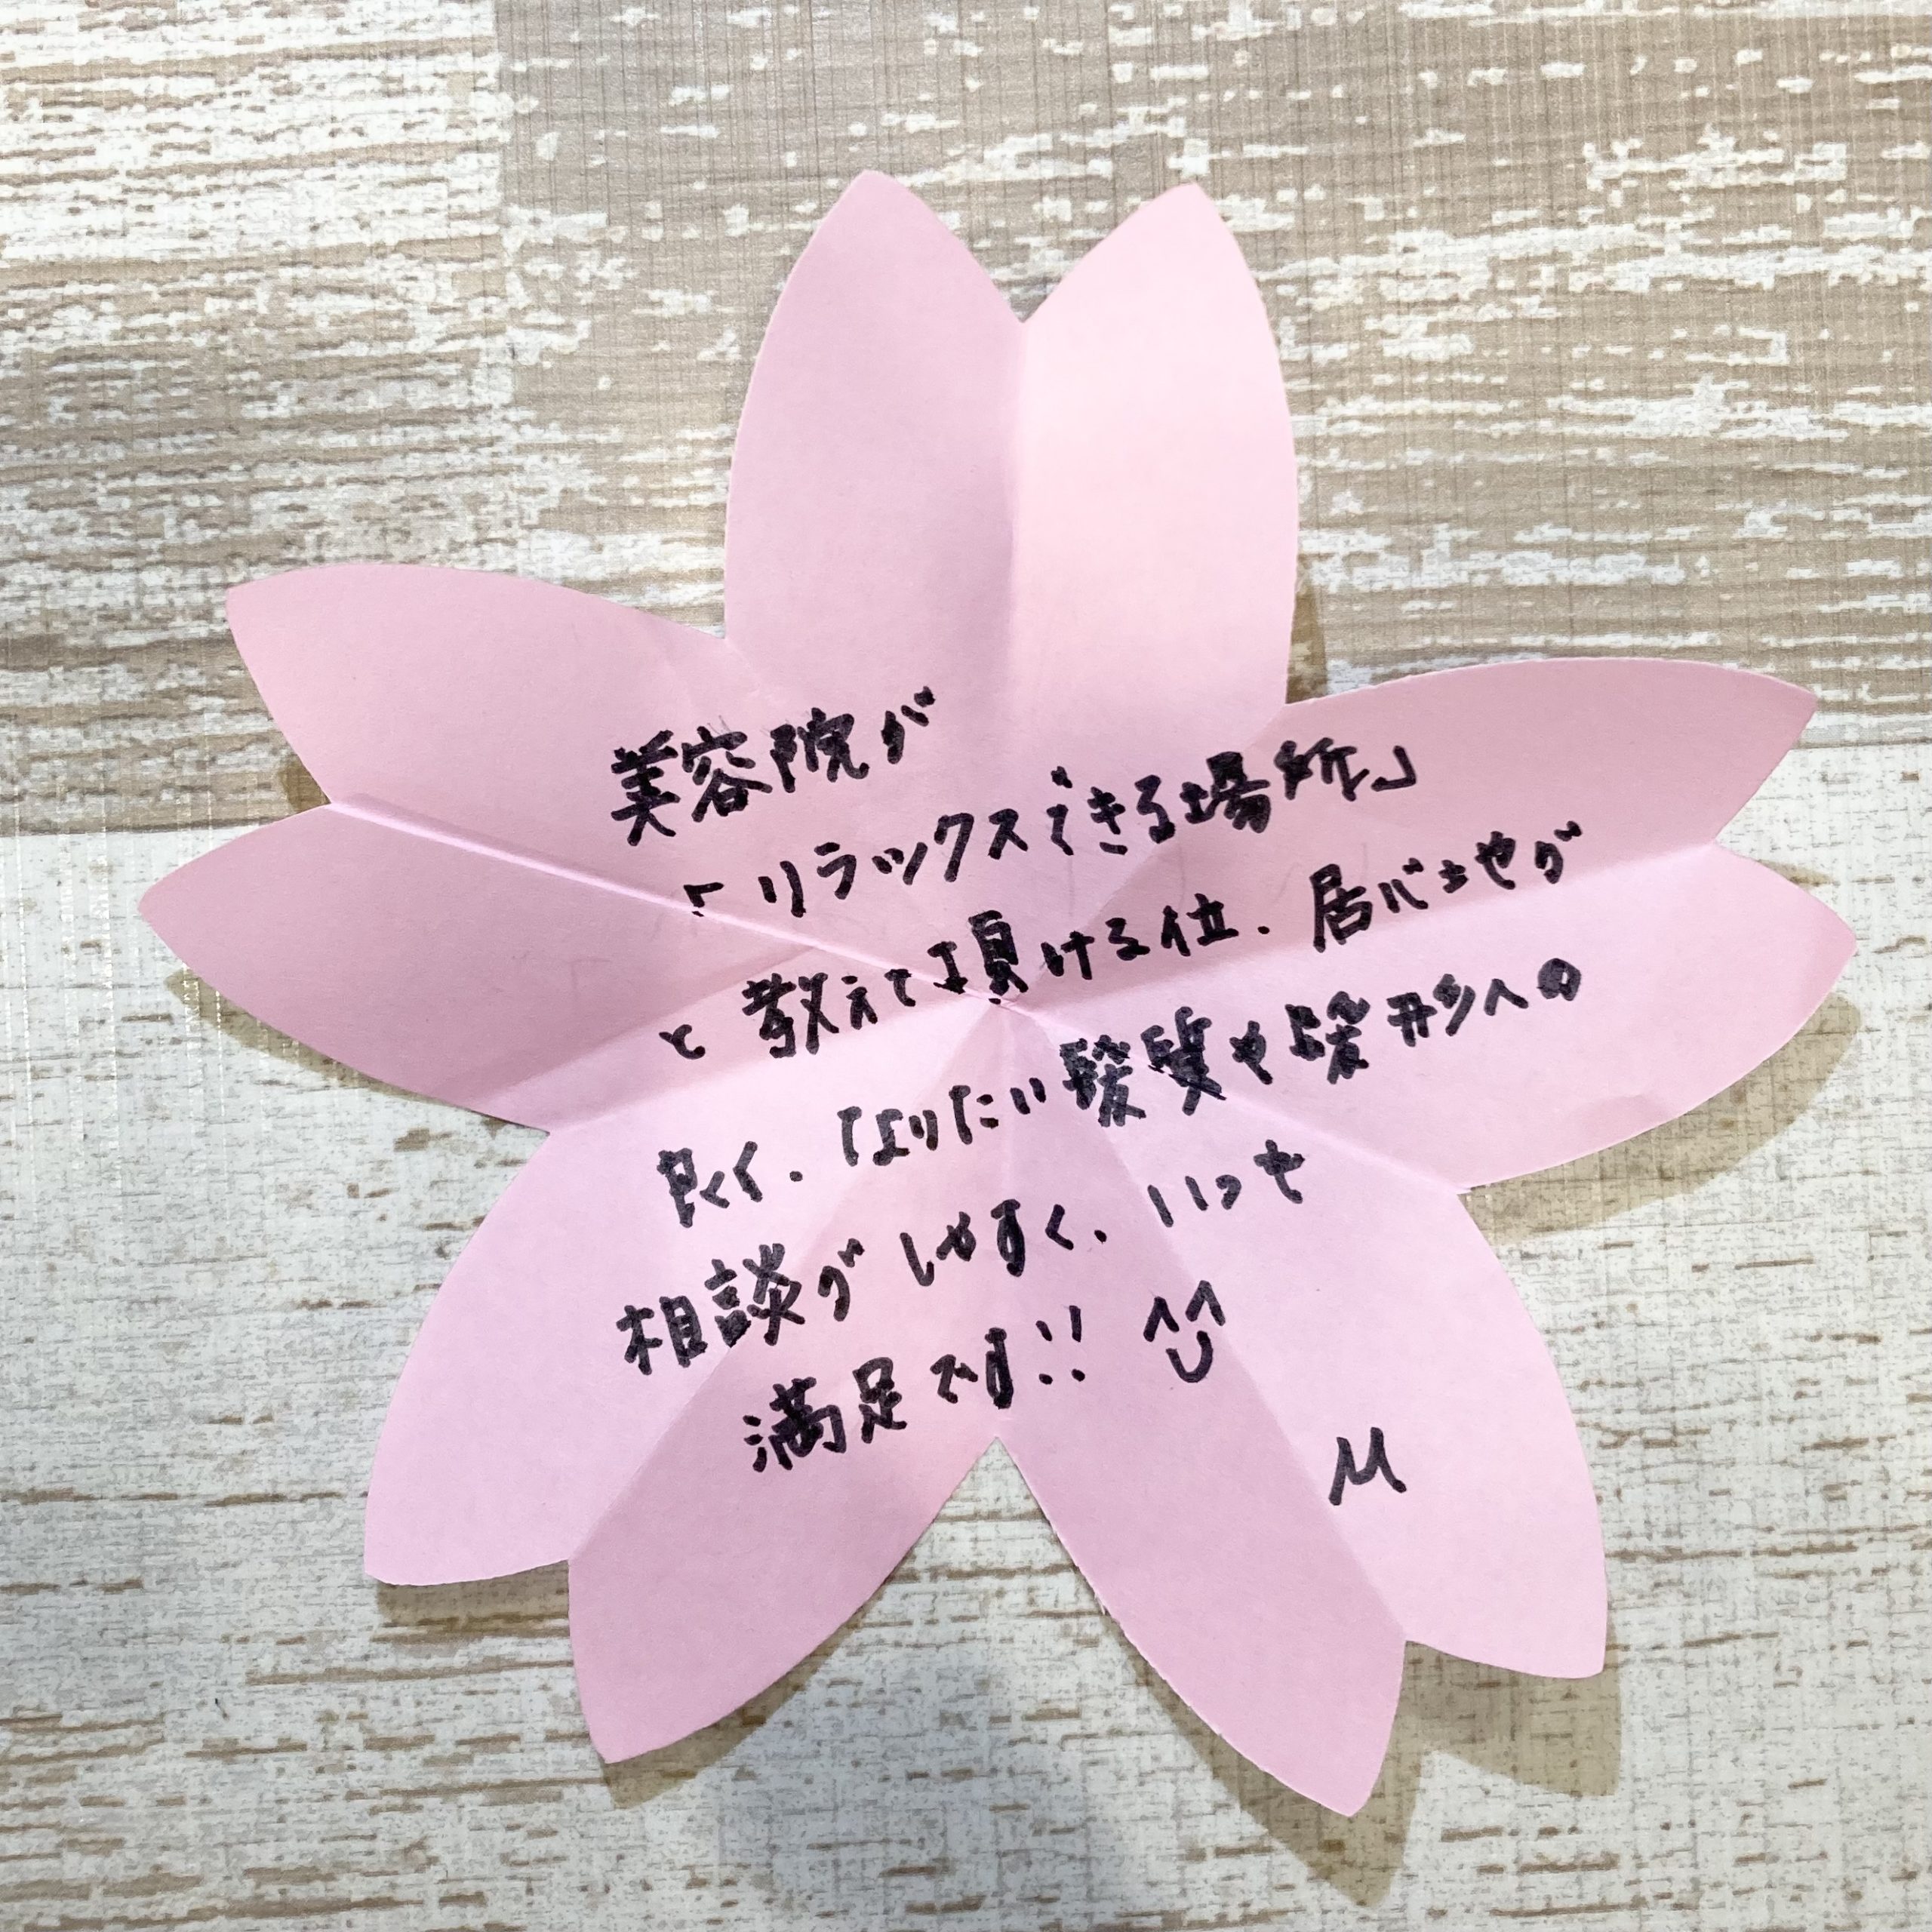 美容院が
「リラックスできる場所」
と教えて頂ける位、居心地が
良く、なりたい髪質や髪形への
相談がしやすく、いつも
満足です!!
M